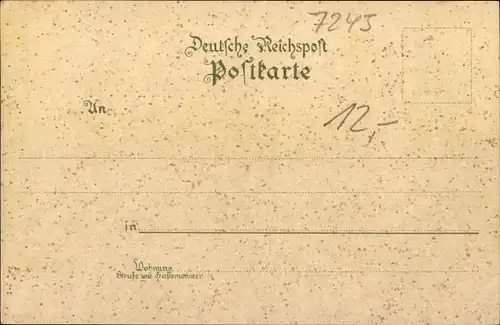 7245
Deutsche Reichspost
Postkarte
12,-
An
in
Wohnung
Straße und Hausnummer